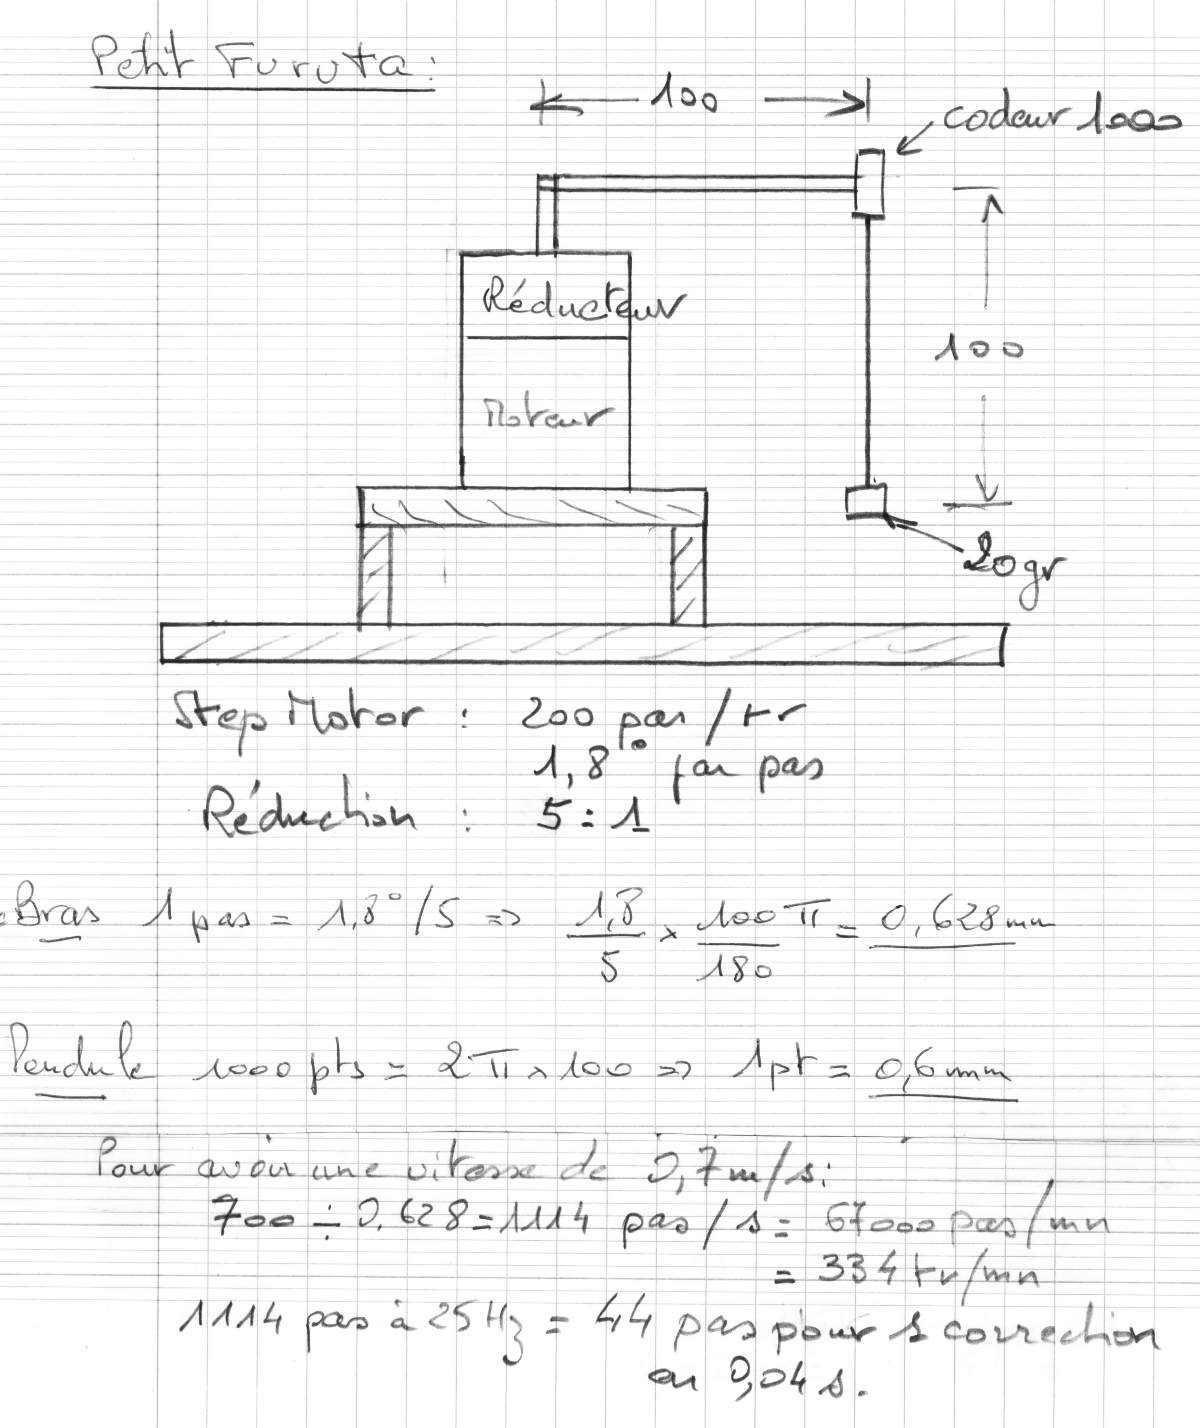 Petit Furuta :
100
codeur 1000
Réducteur
100
Moteur
20gr
Step Motor : 200 pas / tr
1,8° par pas
Réduction : 5:1
Bras 1 pas = 1,8° /5 => 1,8/5 x 100 π/180 = 0,628mm
Pendule 1000 pts = 2π x 100 => 1pt = 0,6mm
Pour avoir une vitesse de 0,7m/s:
700 ÷ 0.628 = 1114 pas / s = 67000 pas/mn
= 334 tr/mn
1114 pas à 25Hz = 44 pas pour 1 correction
en 0,04 s.